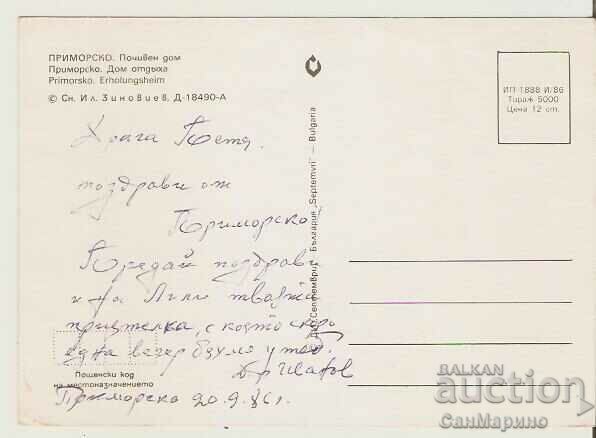 ПРИМОРСКО. Почивен дом
Приморско. Дом отдыха
Primorsko. Erholungsheim
© Сн. Ил. Зиновиев, Д-18490-А
ИП 1888 И/86
Тираж 5000
Цена 12 ст.
България „Septemvri" — Bulgaria
Драга Петя,
поздрави от
Приморско
Предай поздрави
и на Лили твойта
приятелка, с която скоро
една вечер бяхме у теб.
Пощенски код
на местоназначението
Приморско 20.9.86г.
BALKAN
auction
СанМарино